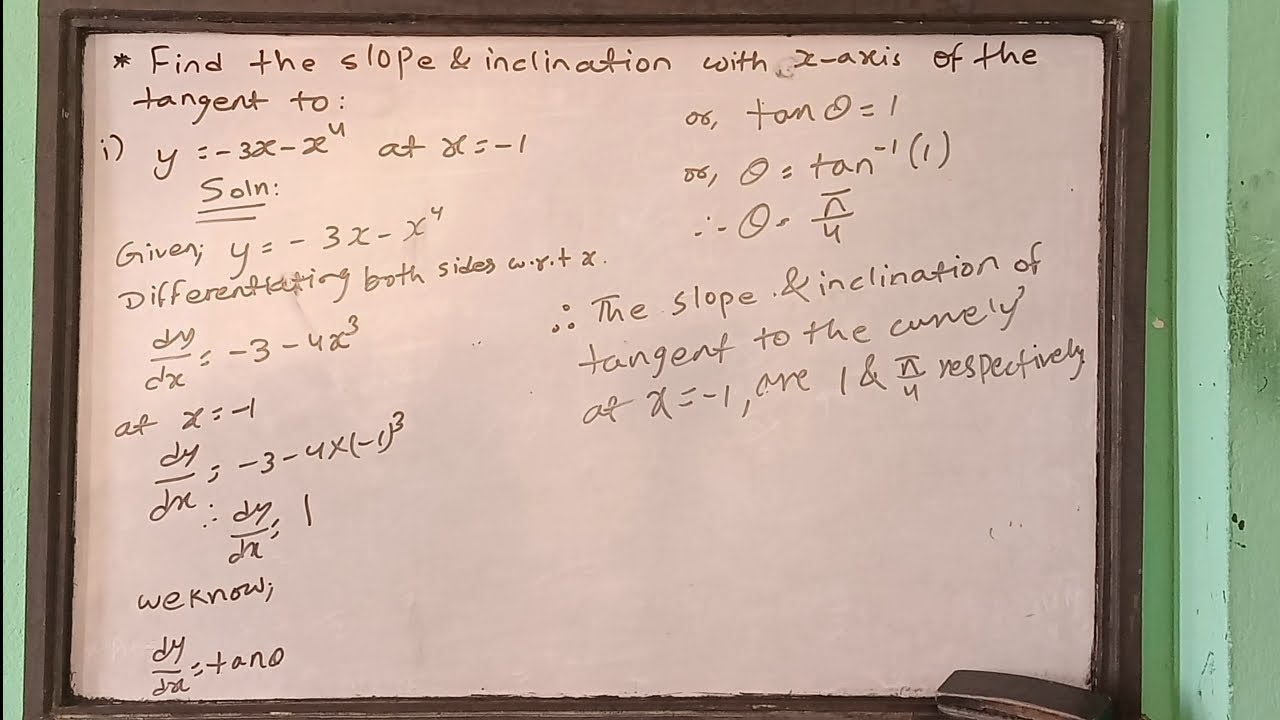 * Find the slope & inclination with x-axis of the
tangent to:
i) y = -3x - x⁴ at x = -1
Soln:
Given; y = - 3x - x⁴
Differentiating both sides w.r.t x.
dy/dx = -3 - 4x³
at x = -1
dy/dx = -3 - 4×(-1)³
∴ dy/dx = 1
we know;
dy/dx = tanθ
or, tanθ = 1
or, θ = tan⁻¹(1)
∴ θ = π/4
∴ The slope & inclination of
tangent to the
at x = -1, are 1 & π/4 respectively